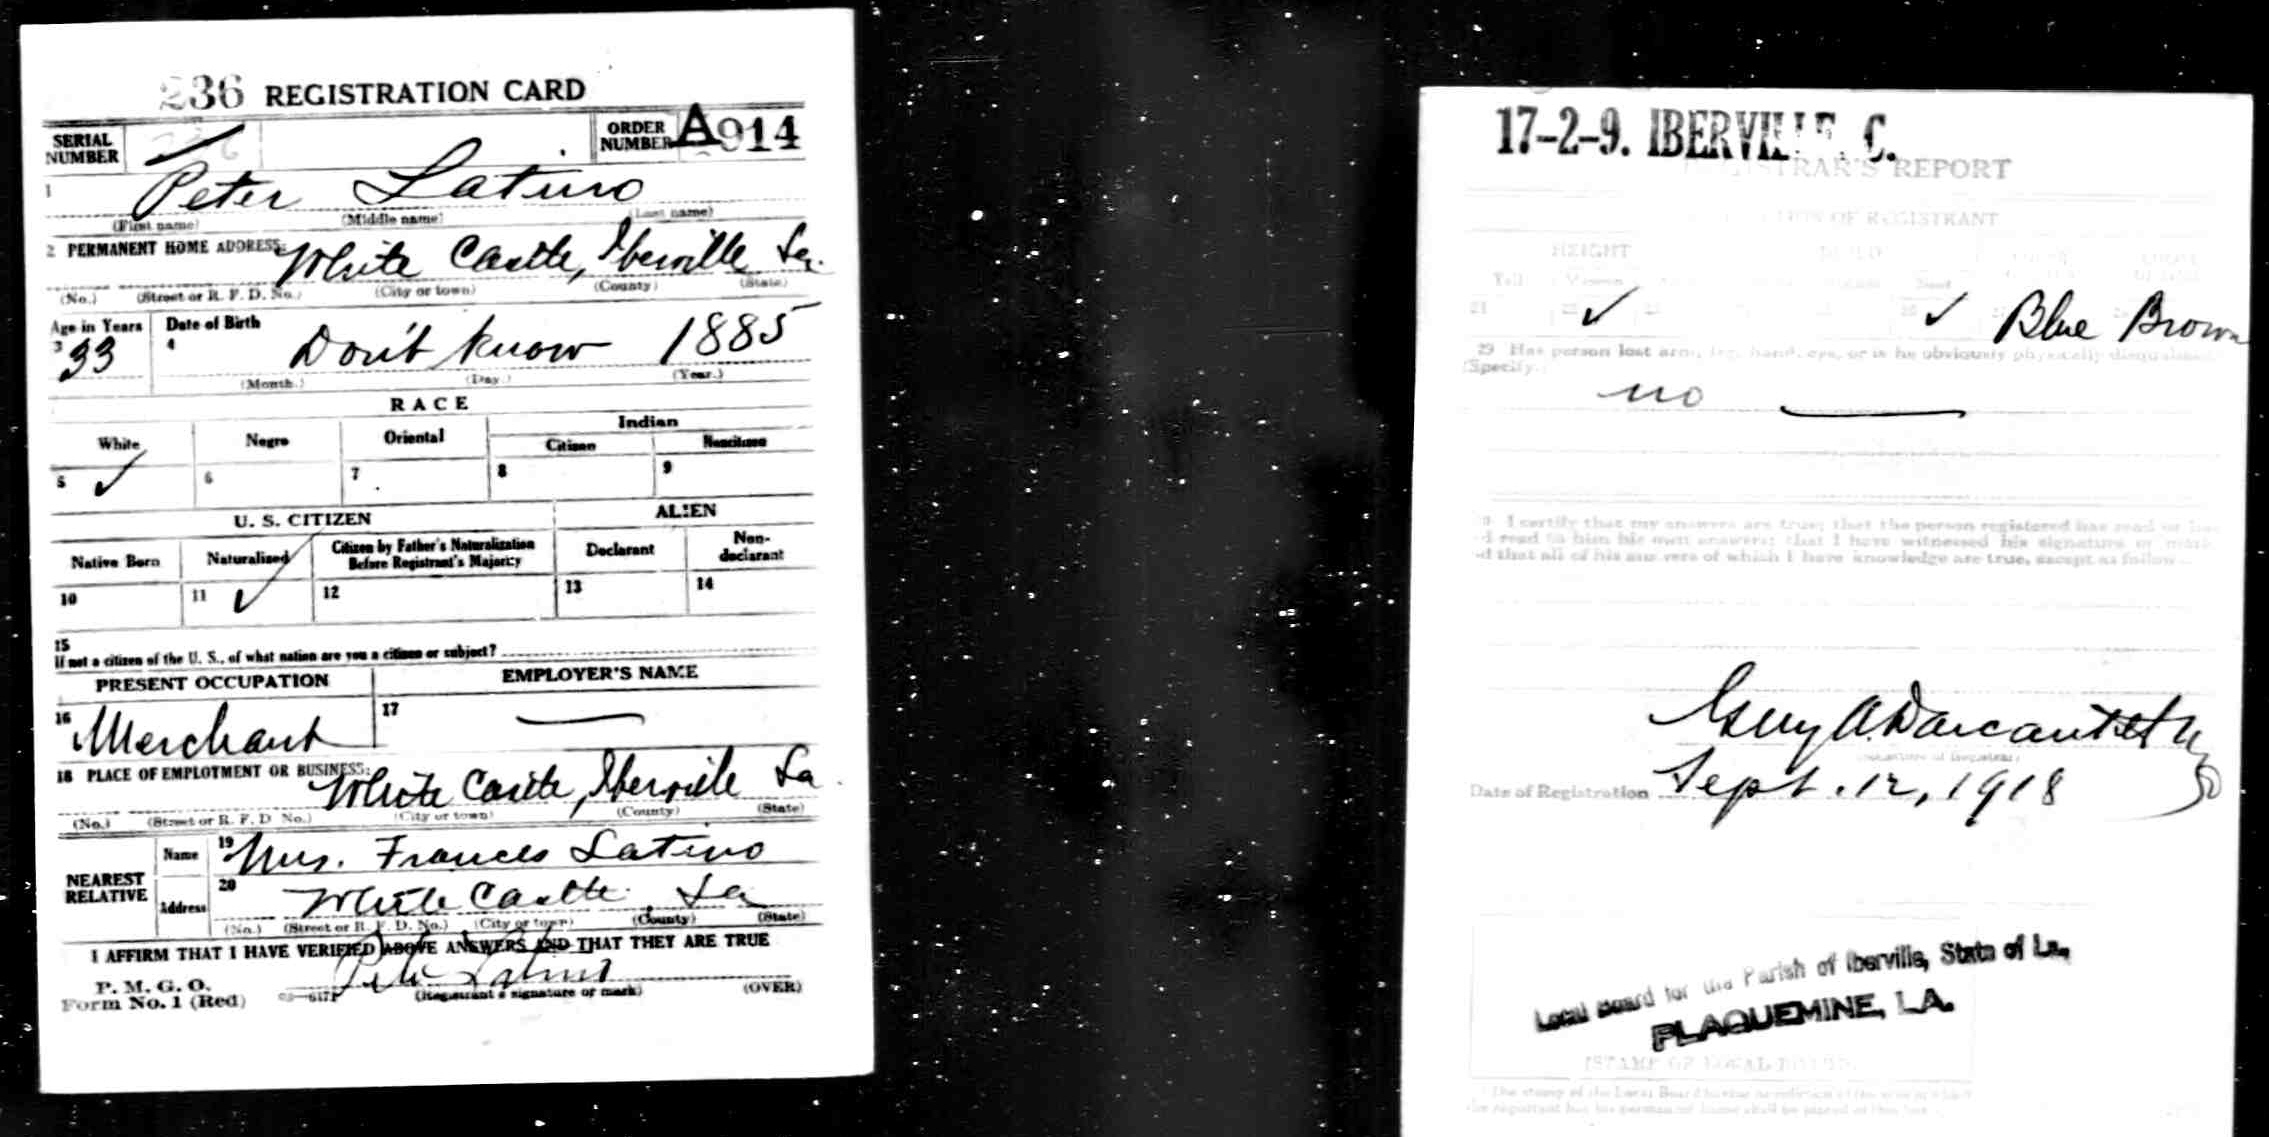 236 REGISTRATION CARD
SERIAL NUMBER
ORDER NUMBER A914
1 Peter Latino
(First name) (Middle name) (Last name)
2 PERMANENT HOME ADDRESS: White Castle, Iberville La.
(No.) (Street or R. F. D. No.) (City or town) (County) (State)
Age in Years Date of Birth
3 33 4 Don't know 1885
(Month.) (Day.) (Year.)
RACE
White Negro Oriental Indian
Citizen Noncitizen
5 ✓ 6 7 8 9
U. S. CITIZEN ALIEN
Native Born Naturalized Citizen by Father's Naturalization Before Registrant's Majority Declarant Non-declarant
10 11 ✓ 12 13 14
15
If not a citizen of the U. S., of what nation are you a citizen or subject?
PRESENT OCCUPATION EMPLOYER'S NAME
16 Merchant 17 —
18 PLACE OF EMPLOYMENT OR BUSINESS: White Castle, Iberville La.
(No.) (Street or R. F. D. No.) (City or town) (County) (State)
NEAREST RELATIVE
Name 19 Mrs. Frances Latino
Address 20 White Castle, La
(No.) (Street or R. F. D. No.) (City or town) (County) (State)
I AFFIRM THAT I HAVE VERIFIED ABOVE ANSWERS AND THAT THEY ARE TRUE
P. M. G. O.
Form No. 1 (Red) Pete Latino
(Registrant's signature or mark) (OVER)
17-2-9. IBERVILLE, C.
REGISTRAR'S REPORT
DESCRIPTION OF REGISTRANT
HEIGHT BUILD
Tall Medium Stout
21 22 ✓ 23 ✓ Blue Brown
29 Has person lost arm, leg, hand, eye, or is he obviously physically disqualified?
(Specify.)
no —
30 I certify that my answers are true; that the person registered has read or has
had read to him his own answers; that I have witnessed his signature or mark
and that all of his answers of which I have knowledge are true, except as follows
(Signature of Registrar)
Date of Registration Sept. 12, 1918
Local Board for the Parish of Iberville, State of La.,
PLAQUEMINE, LA.
(STAMP OF LOCAL BOARD)